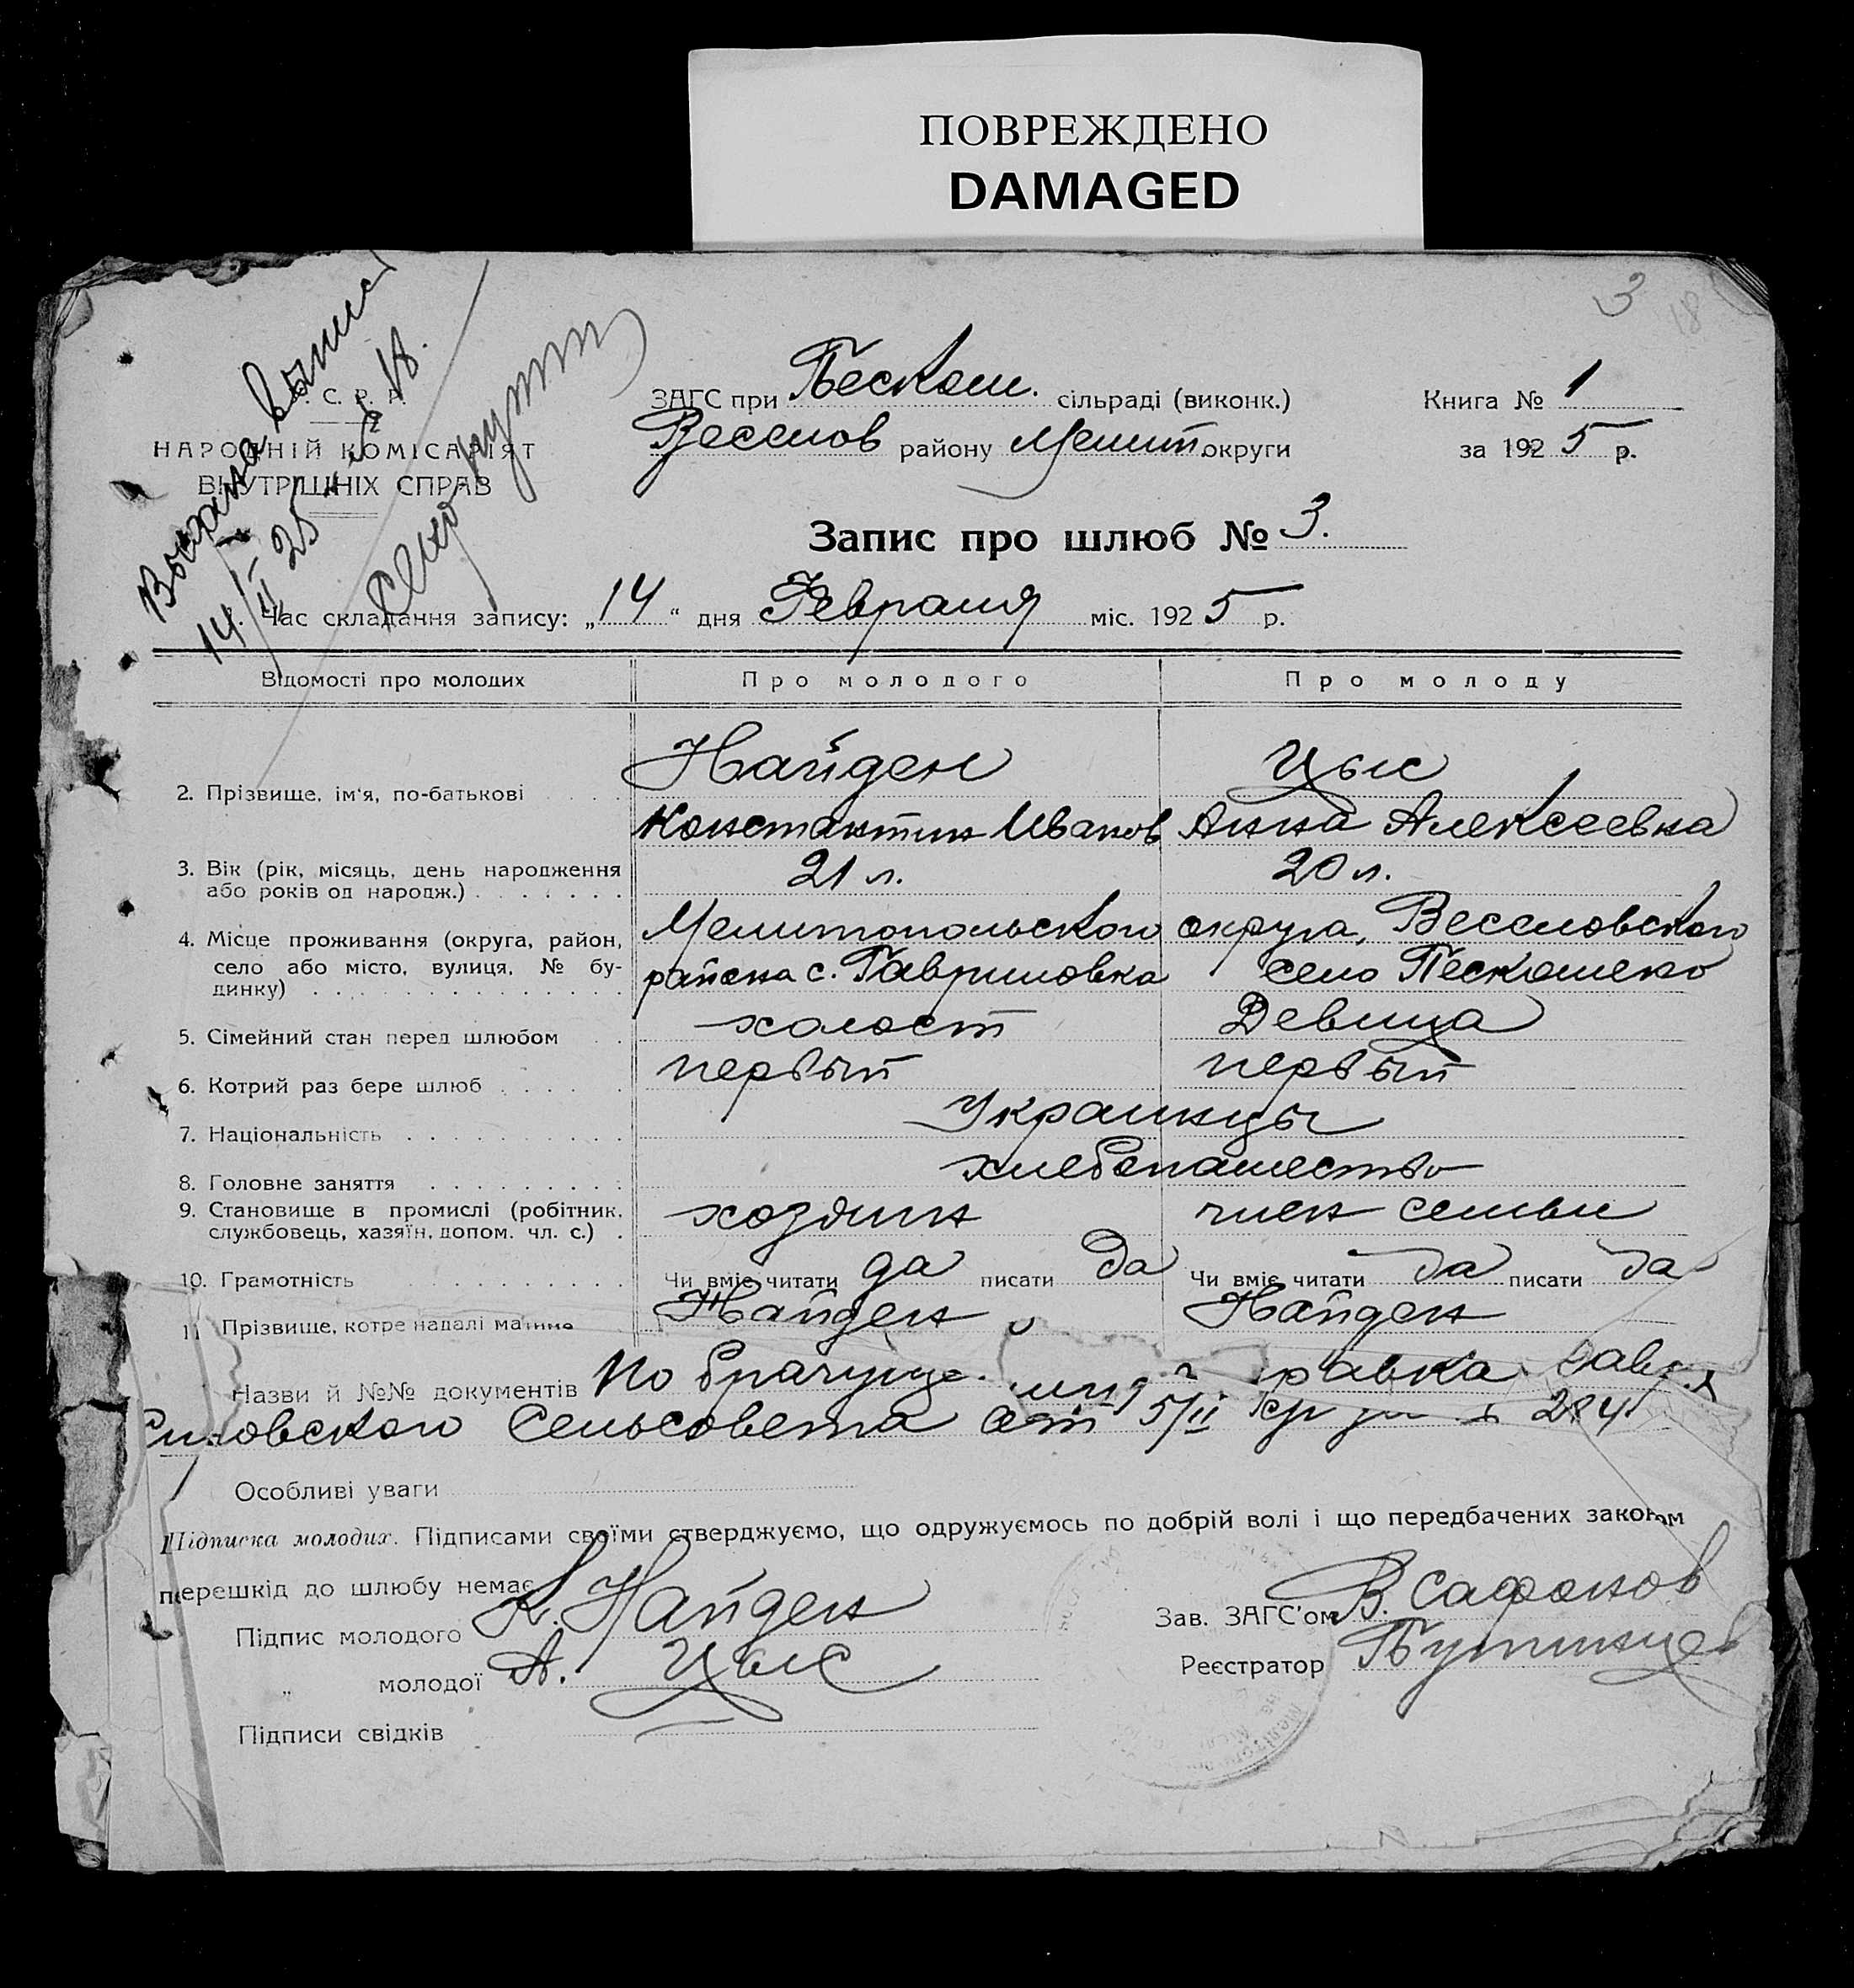 ПОВРЕЖДЕНО
DAMAGED
3
18
Выдана выпись
14/II 25 № 18.
С. Р. Р.
НАРОДНІЙ КОМІСАРІЯТ
ВНУТРІШНІХ СПРАВ
ЗАГС при Пескош. сільраді (виконк.)
Веселов району Мелит. округи
Книга № 1
за 1925 р.
Запис про шлюб № 3.
Час складання запису: „14“ дня Февраля міс. 1925 р.
Відомості про молодих Про молодого Про молоду
2. Прізвище, ім'я, по-батькові
Найден Цыс
Константин Иванов Анна Алексеевна
3. Вік (рік, місяць, день народження
або років од народж.)
21 л. 20 л.
4. Місце проживання (округа, район,
село або місто, вулиця, № бу-
динку)
Мелитопольского округа, Веселовского
района с. Гавриловка село Пескошено
5. Сімейний стан перед шлюбом холост Девица
6. Котрий раз бере шлюб первый первый
7. Національність Украинцы
8. Головне заняття хлебопашество
9. Становище в промислі (робітник,
службовець, хазяїн, допом. чл. с.)
хозяин член семьи
10. Грамотність Чи вміє читати да писати да Чи вміє читати да писати да
11 Прізвище, котре надалі Найден Найден
Назви й №№ документів По
Сельсовета от 5/II
Особливі уваги
Підписка молодих. Підписами своїми стверджуємо, що одружуємось по добрій волі і що передбачених законом
перешкід до шлюбу немає
Підпис молодого К. Найден
„ молодої А. Цыс
Підписи свідків
Зав. ЗАГС'ом В. Сафонов
Реєстратор